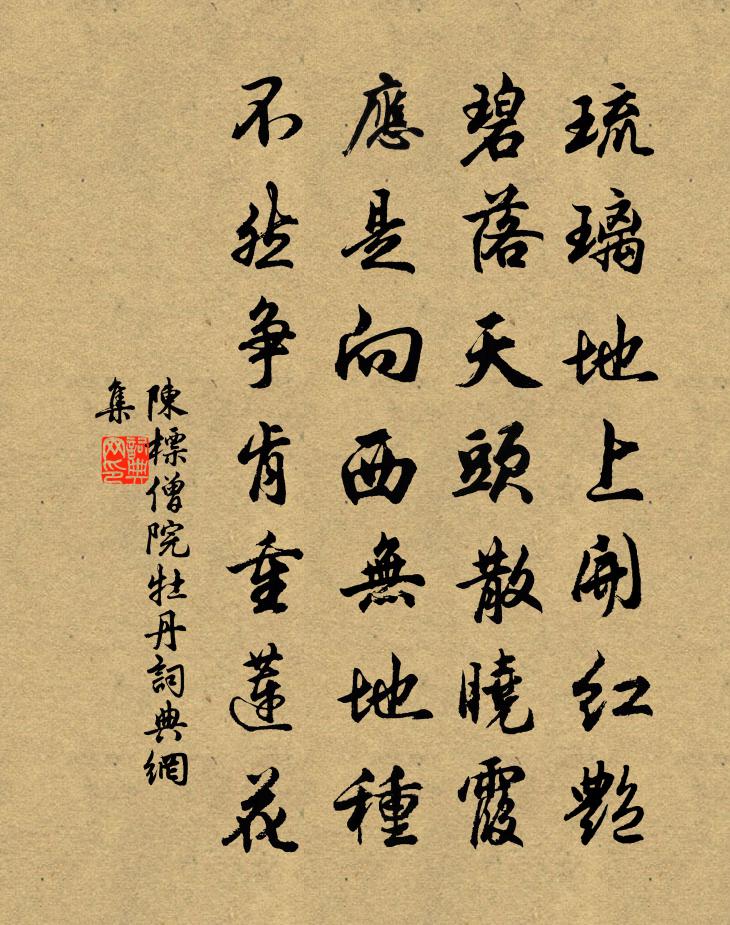 琉璃地上開紅艷
碧落天頭散曉霞
應是向西無地種
不然争肯重蓮花
陳標僧院牡丹詞典網
集
詞典
网印